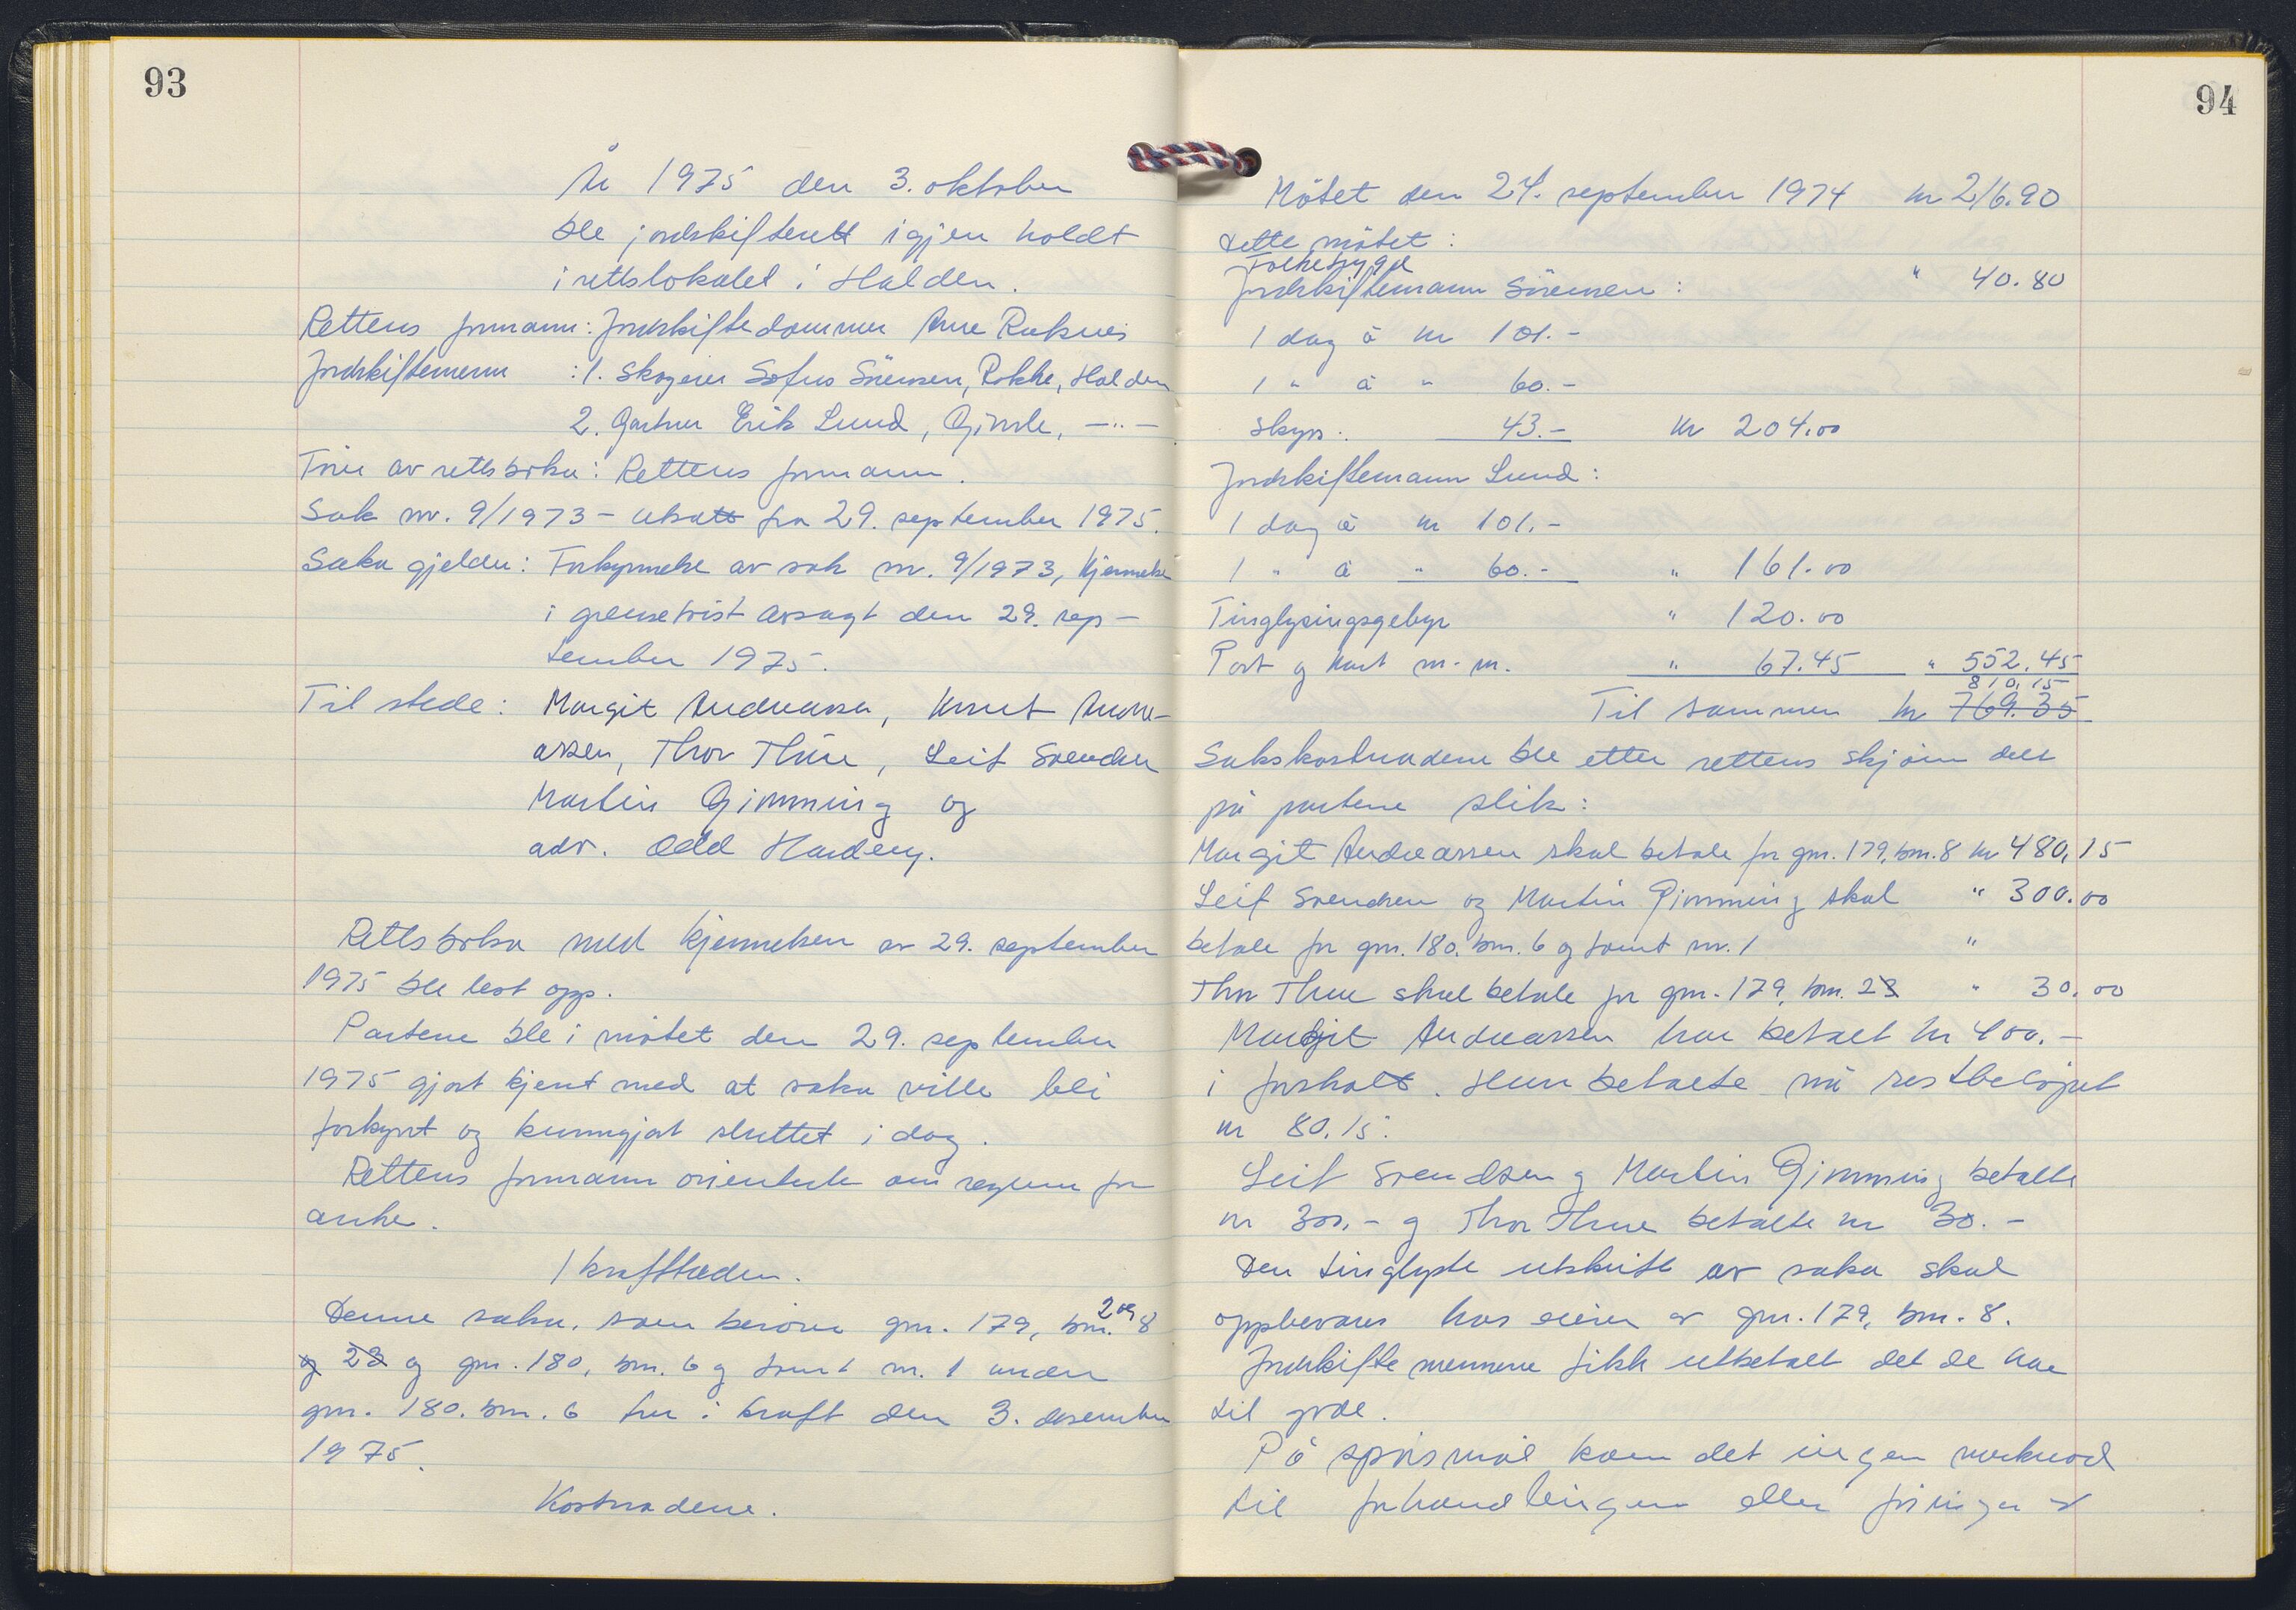 93
År 1975 den 3. oktober
ble jordskifterett igjen holdt
i rettslokalet i Halden.
Rettens formann: Jordskiftedommer Arne Raknes
Jordskiftemenn : 1. Skogeier Sofus Sörensen, Rokke, Halden
2. Gartner Erik Lund, Gimle, —"—
Förer av rettsboka: Rettens formann.
Sak nr. 9/1973 – utsatt fra 29. september 1975.
Saka gjelder: Forkynnelse av sak nr. 9/1973, kjennelse
i grensetvist avsagt den 29. sep-
tember 1975.
Til stede: Margit Andreassen, Knut Andre-
assen, Thor Thue, Leif Svendsen
Martin Gimming og
adv. Odd Hardeng.
Rettsboka med kjennelsen av 29. september
1975 ble lest opp.
Partene ble i mötet den 29. september
1975 gjort kjent med at saka ville bli
forkynt og kunngjort sluttet i dag.
Rettens formann orienterte om reglene for
anke.
Ikrafttreden.
Denne saka, som berörer gnr. 179, bnr. 2 og 8
og 23 og gnr. 180, bnr. 6 og tomt nr. 1 under
gnr. 180. bnr. 6 trer i kraft den 3. desember
1975.
Kostnadene.
94
Mötet den 24. september 1974 kr 216.90
Dette mötet:
Folketrygd " 40.80
Jordskiftemann Sörensen:
1 dag á kr 101.-
1 " á " 60.-
Skyss: 43.- kr 204.00
Jordskiftemann Lund:
1 dag á kr 101.-
1 " á " 60.- " 161.00
Tinglysingsgebyr " 120.00
Port og kart m.m. " 67.45 " 552.45
810,15
Til sammen kr 769.35
Sakskostnadene ble etter rettens skjönn delt
på partene slik:
Margit Andreassen skal betale for gnr. 179, bnr. 8 kr 480,15
Leif Svendsen og Martin Gimming skal " 300.00
betale for gnr. 180. bnr. 6 og tomt nr. 1 "
Thor Thue skal betale for gnr. 179, bnr. 23 " 30.00
Margit Andreassen har betalt kr 400.-
i forskott. Hun betalte nå restbelöpet
kr 80.15.
Leif Svendsen og Martin Gimming betalte
kr 300.- og Thor Thue betalte kr 30.-
Den tinglyste utskrift av saka skal
oppbevares hos eieren av gnr. 179, bnr. 8.
Jordskiftemennene fikk utbetalt det de har
til gode.
På spörsmål kom det ingen merknad
til forhandlingene eller föringen av